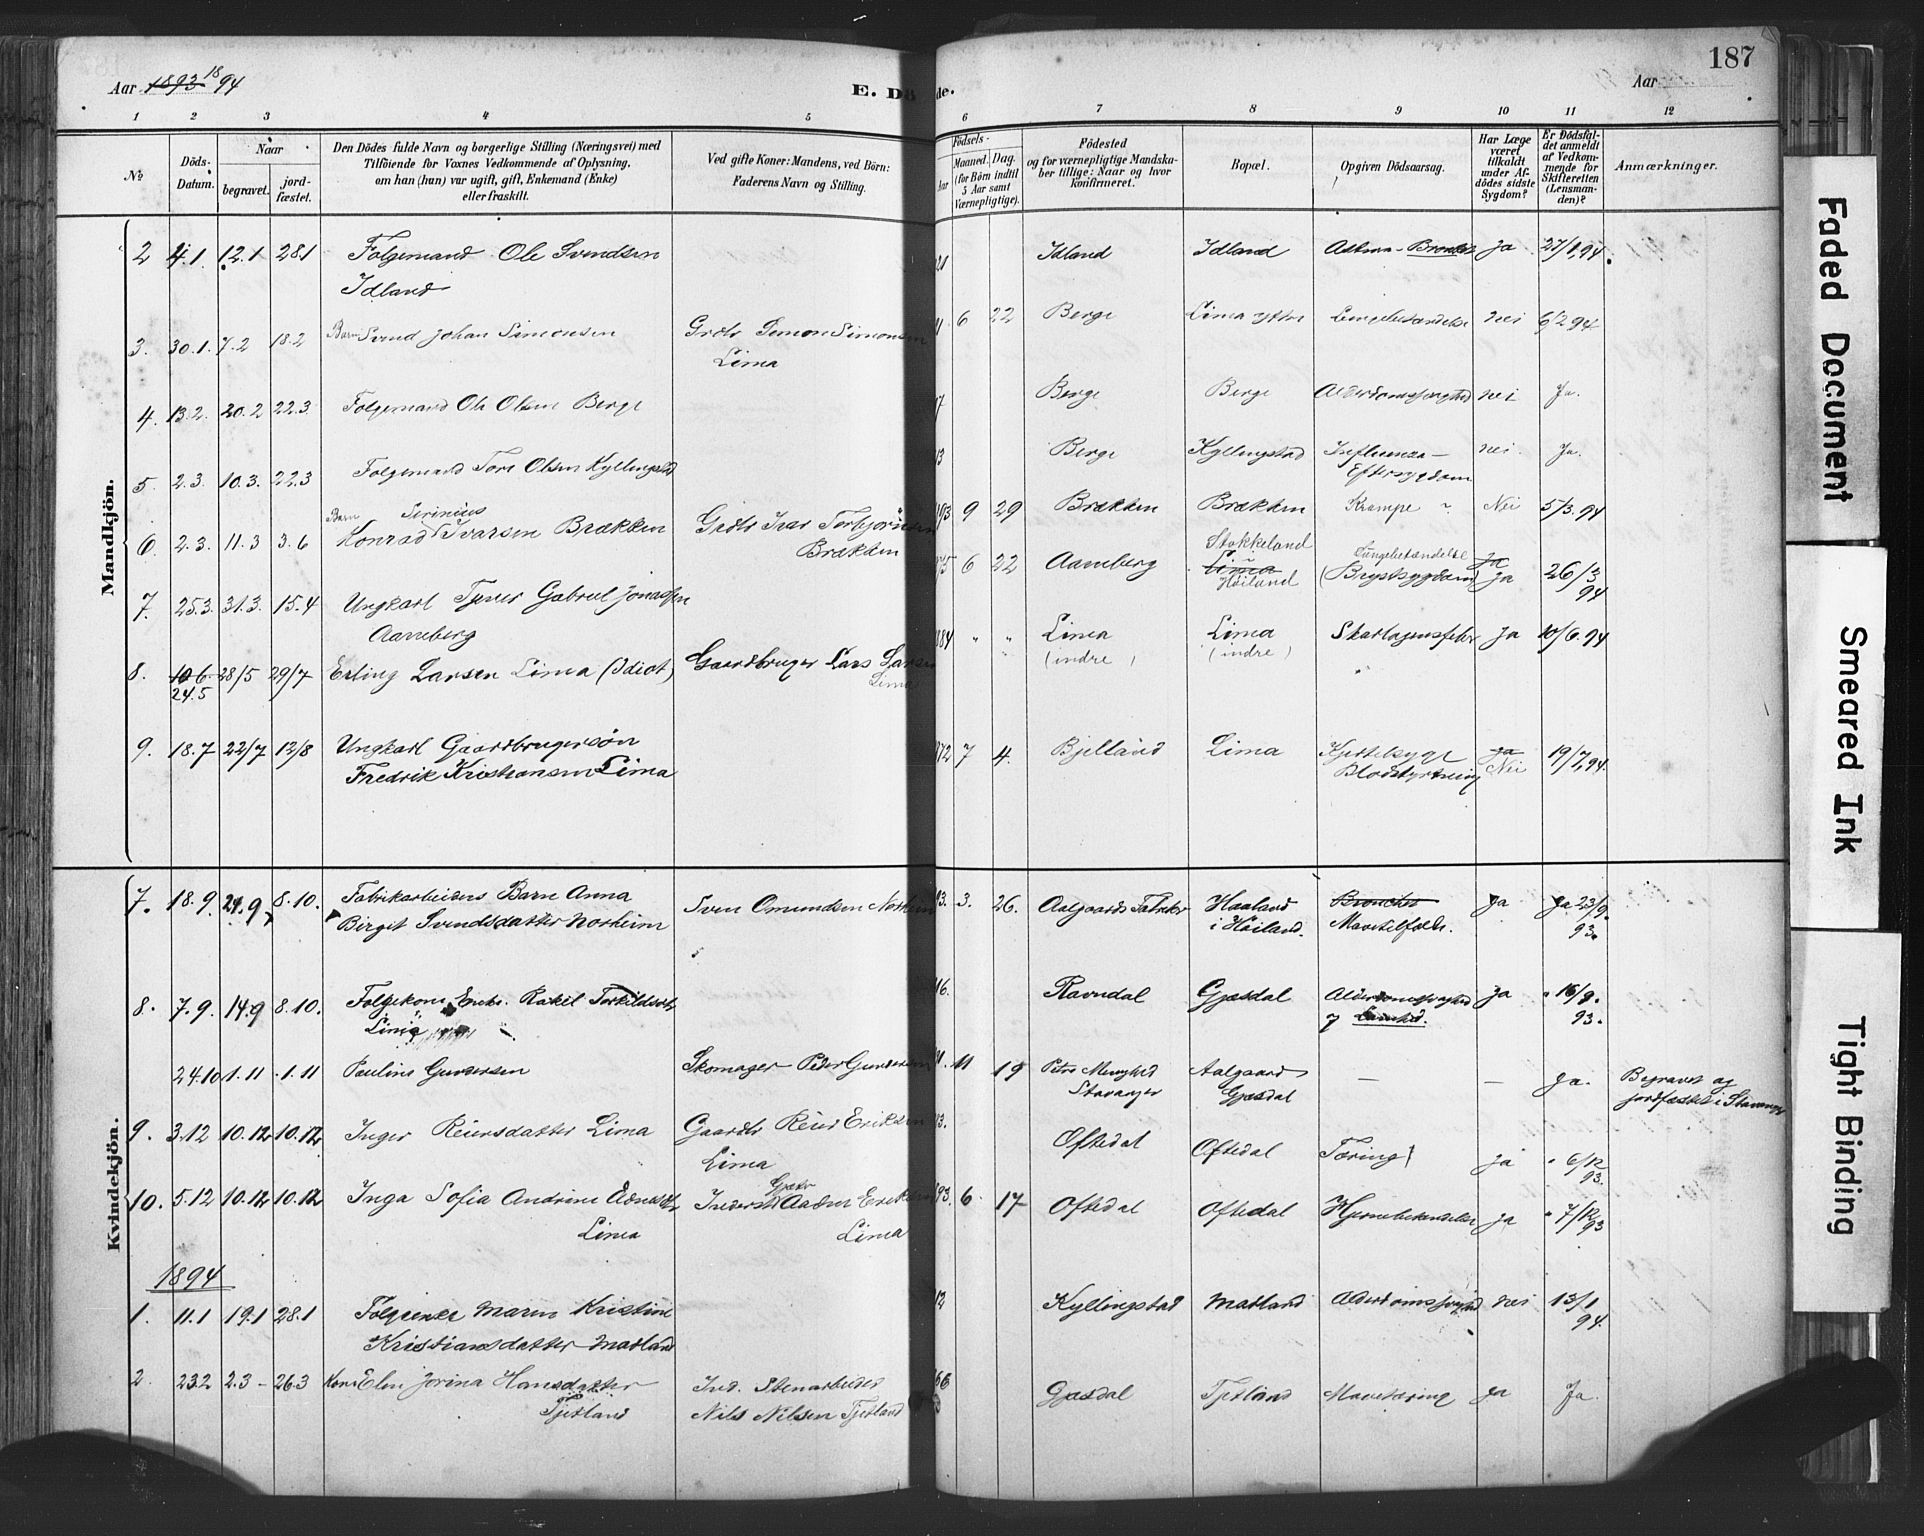 187
Aar 1893 1894
E. Dö
de.
Aar
1 2 3 4 5 6 7 8 9 10 11 12
№
Döds-
Datum.
Naar
begravet.
jord-
fæstet.
Den Dödes fulde Navn og borgerlige Stilling (Næringsvei) med
Tilföiende for Voxnes Vedkommende af Oplysning,
om han (hun) var ugift, gift, Enkemand (Enke)
eller fraskilt.
Ved gifte Koner: Mandens, ved Börn:
Faderens Navn og Stilling.
Födsels-
Aar
Maaned. Dag.
(for Börn indtil
5 Aar samt
Værnepligtige).
Födested
og for værnepligtige Mandska-
ber tillige: Naar og hvor
konfirmeret.
Bopæl.
Opgiven Dödsaarsag.
Har Læge
været
tilkaldt
under Af-
dödes sidste
Sygdom?
Er Dödsfal-
det anmeldt
af Vedkom-
mende for
Skifteretten
(Lensman-
den)?
Anmærkninger.
Mandkjön.
2 4.1. 12.1 28.1 Folgemand Ole Svendsen 21 Idland Idland Astma - Bronkit Ja 27/1 94.
Idland
3. 30.1. 7.2 18.2 Barn Svend Johan Simonsen Grdbr Simon Simonsen 6 22 Berge Lima ytre Lungebetændelse nei 6/2 94
Lima
4. 13.2. 20.2 22.3. Folgemand Ole Olsen Berge Berge Berge Alderdomssvaghed nei Ja.
5. 2.3. 10.3. 22.3 Folgemand Tore Olsen Kyllingstad Berge Kyllingstad Influenza - nei Ja.
Eftersygdom
6. 2.3. 11.3 3.6 Barn Konrad Serinius Ivarsen Brækken Grdbr Ivar Torbjörnsen 93 9 29 Brækken Brækken Krampe Nei 5/3.94
Brækken
7. 25.3. 31.3. 15.4 Ungkarl Gabriel Jonassen 75 6 22 Aaneberg Stokkeland Lima Höiland Lungebetændelse (Brystsygdom) Ja Ja 26/3 94
Aaneberg
8. 10.6 24.5 28/5 29/7 Erling Larsen Lima (Idiot) Gaardbruger Lars Larsen 84 " " Lima Lima Skarlagensfeber Ja 10/6.94
Lima (indre) (indre)
9. 18.7 22/7 12/8 Ungkarl Gaardbrugersön 72 7 4. Bjelland Lima Kjertelsyge Ja Nei 19/7.94.
Fredrik Kristiansen Lima Blodstyrtning
Kvindekjön.
7. 18.9. 24.9. 8.10. Fabrikarbeiders Barn Anna Sven Omundsen Norheim 93. 3. 26. Aalgaards Fabriker Haaland Bronchit Ja Ja 23/9.
Birgit Svendsdatter Norheim i Höiland. Mavetilfælde. 93.
8. 7.9. 14.9 8.10. Folgekone Enke. Rakel Torkildsdtr 16. Ravndal Gjesdal Alderdomssvaghed Ja " 16/9.
Lima 93.
24.10 1.11 1.11 Pauline Gundersen Skomager Peder Gundersen 11 19 Petri Menighed Aalgaard — — Ja. Begravet og
Stavanger Gjesdal jordfæstet i Stavanger
9. 3.12 10.12 10.12 Inger Reiersdatter Lima Gaardbr Reier Eriksen 93. Oftedal Oftedal Tæring ja " 6/12
Lima 93.
10. 5.12 10.12 10.12 Inga Sofia Andrine Ådnesdtr Inderst Gjæstr Aadne Eriksen 93. 6 17 Oftedal Oftedal Hjernebetændelse ja " 7/12
Lima Lima 93
1894
1. 11.1 19.1 28.1 Folgeenke Maren Kristine 12 Kyllingstad Madland Alderdomssvaghed nei 13/1
Kristiansdatter Madland 94.
2. 23.2 2.3 - 26.3 Kone Elen Jorina Hansdatter Ind. Stenarbeider 66 Gjesdal Tjetland Mavetæring ja Ja.
Tjetland Nils Nilsen Tjetland
Faded Document
Smeared Ink
Tight Binding